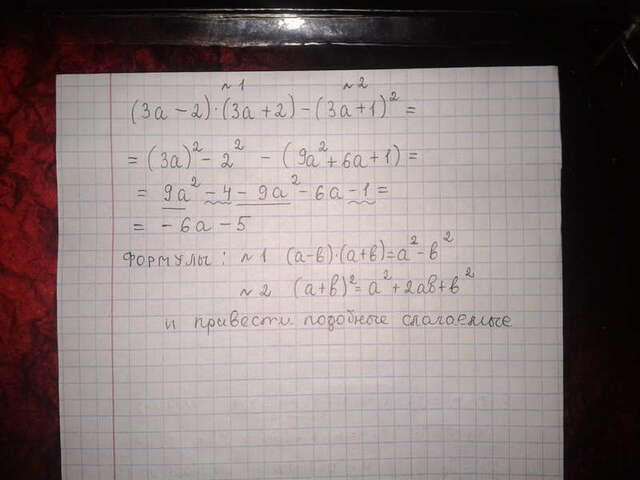 ~1 ~2
(3a-2)·(3a+2)-(3a+1)²=
=(3a)²-2²-(9a²+6a+1)=
=9a²-4-9a²-6a-1=
=-6a-5
Формулы: ~1 (a-в)·(a+в)=a²-в²
~2 (a+в)²=a²+2aв+в²
и привести подобные слагаемые